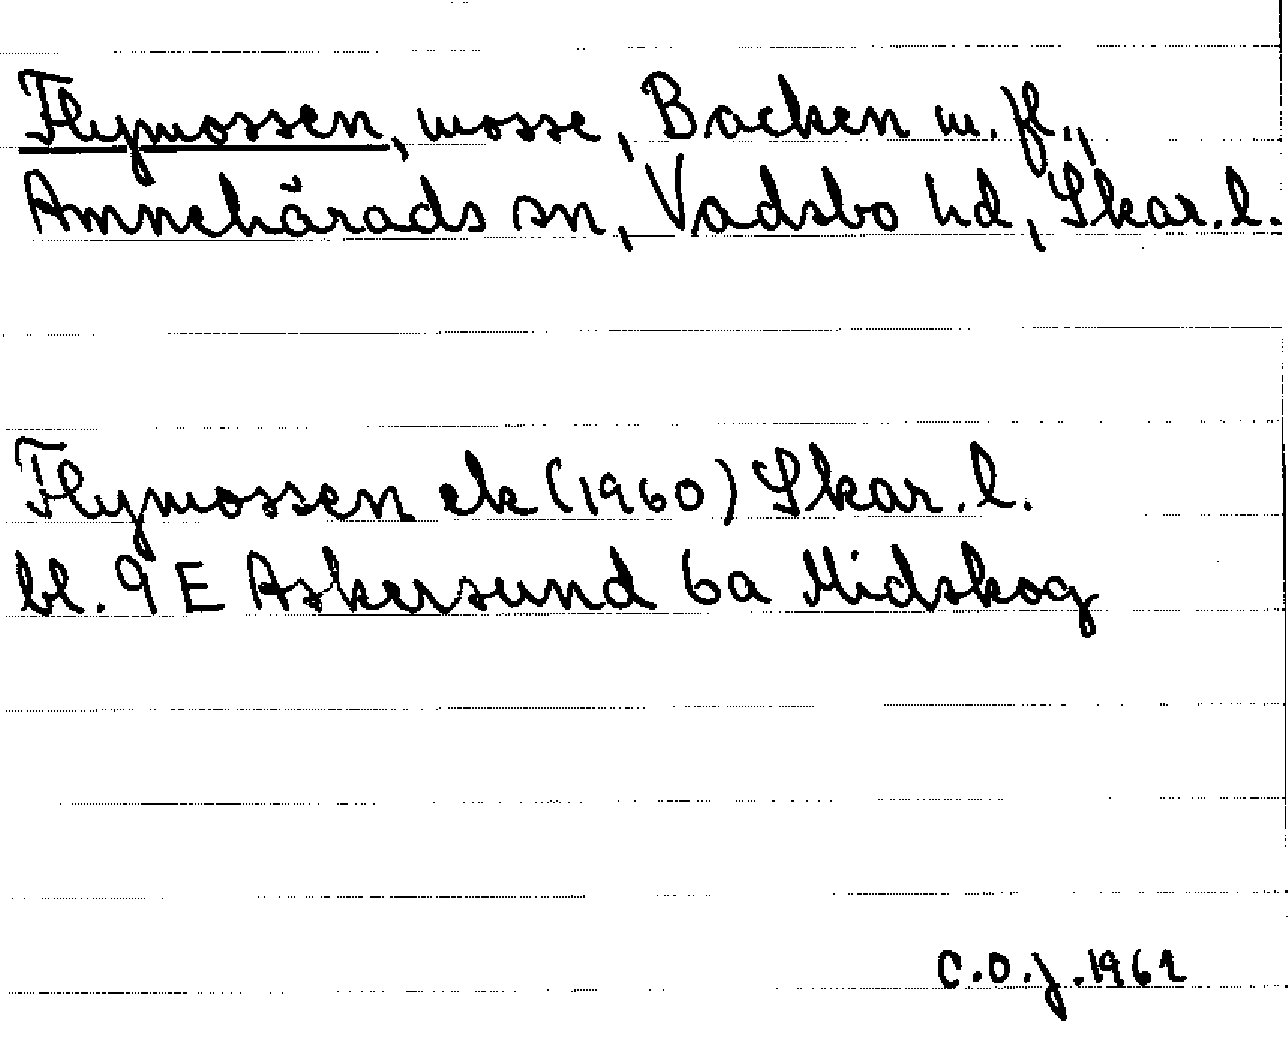 Flymossen, mosse, Backen m. fl.,
Amnehärads sn, Vadsbo hd, Skar. l.
Flymossen ek (1960) Skar. l.
bl. 9 E Askersund 6a Midskog
C.O.J. 1961